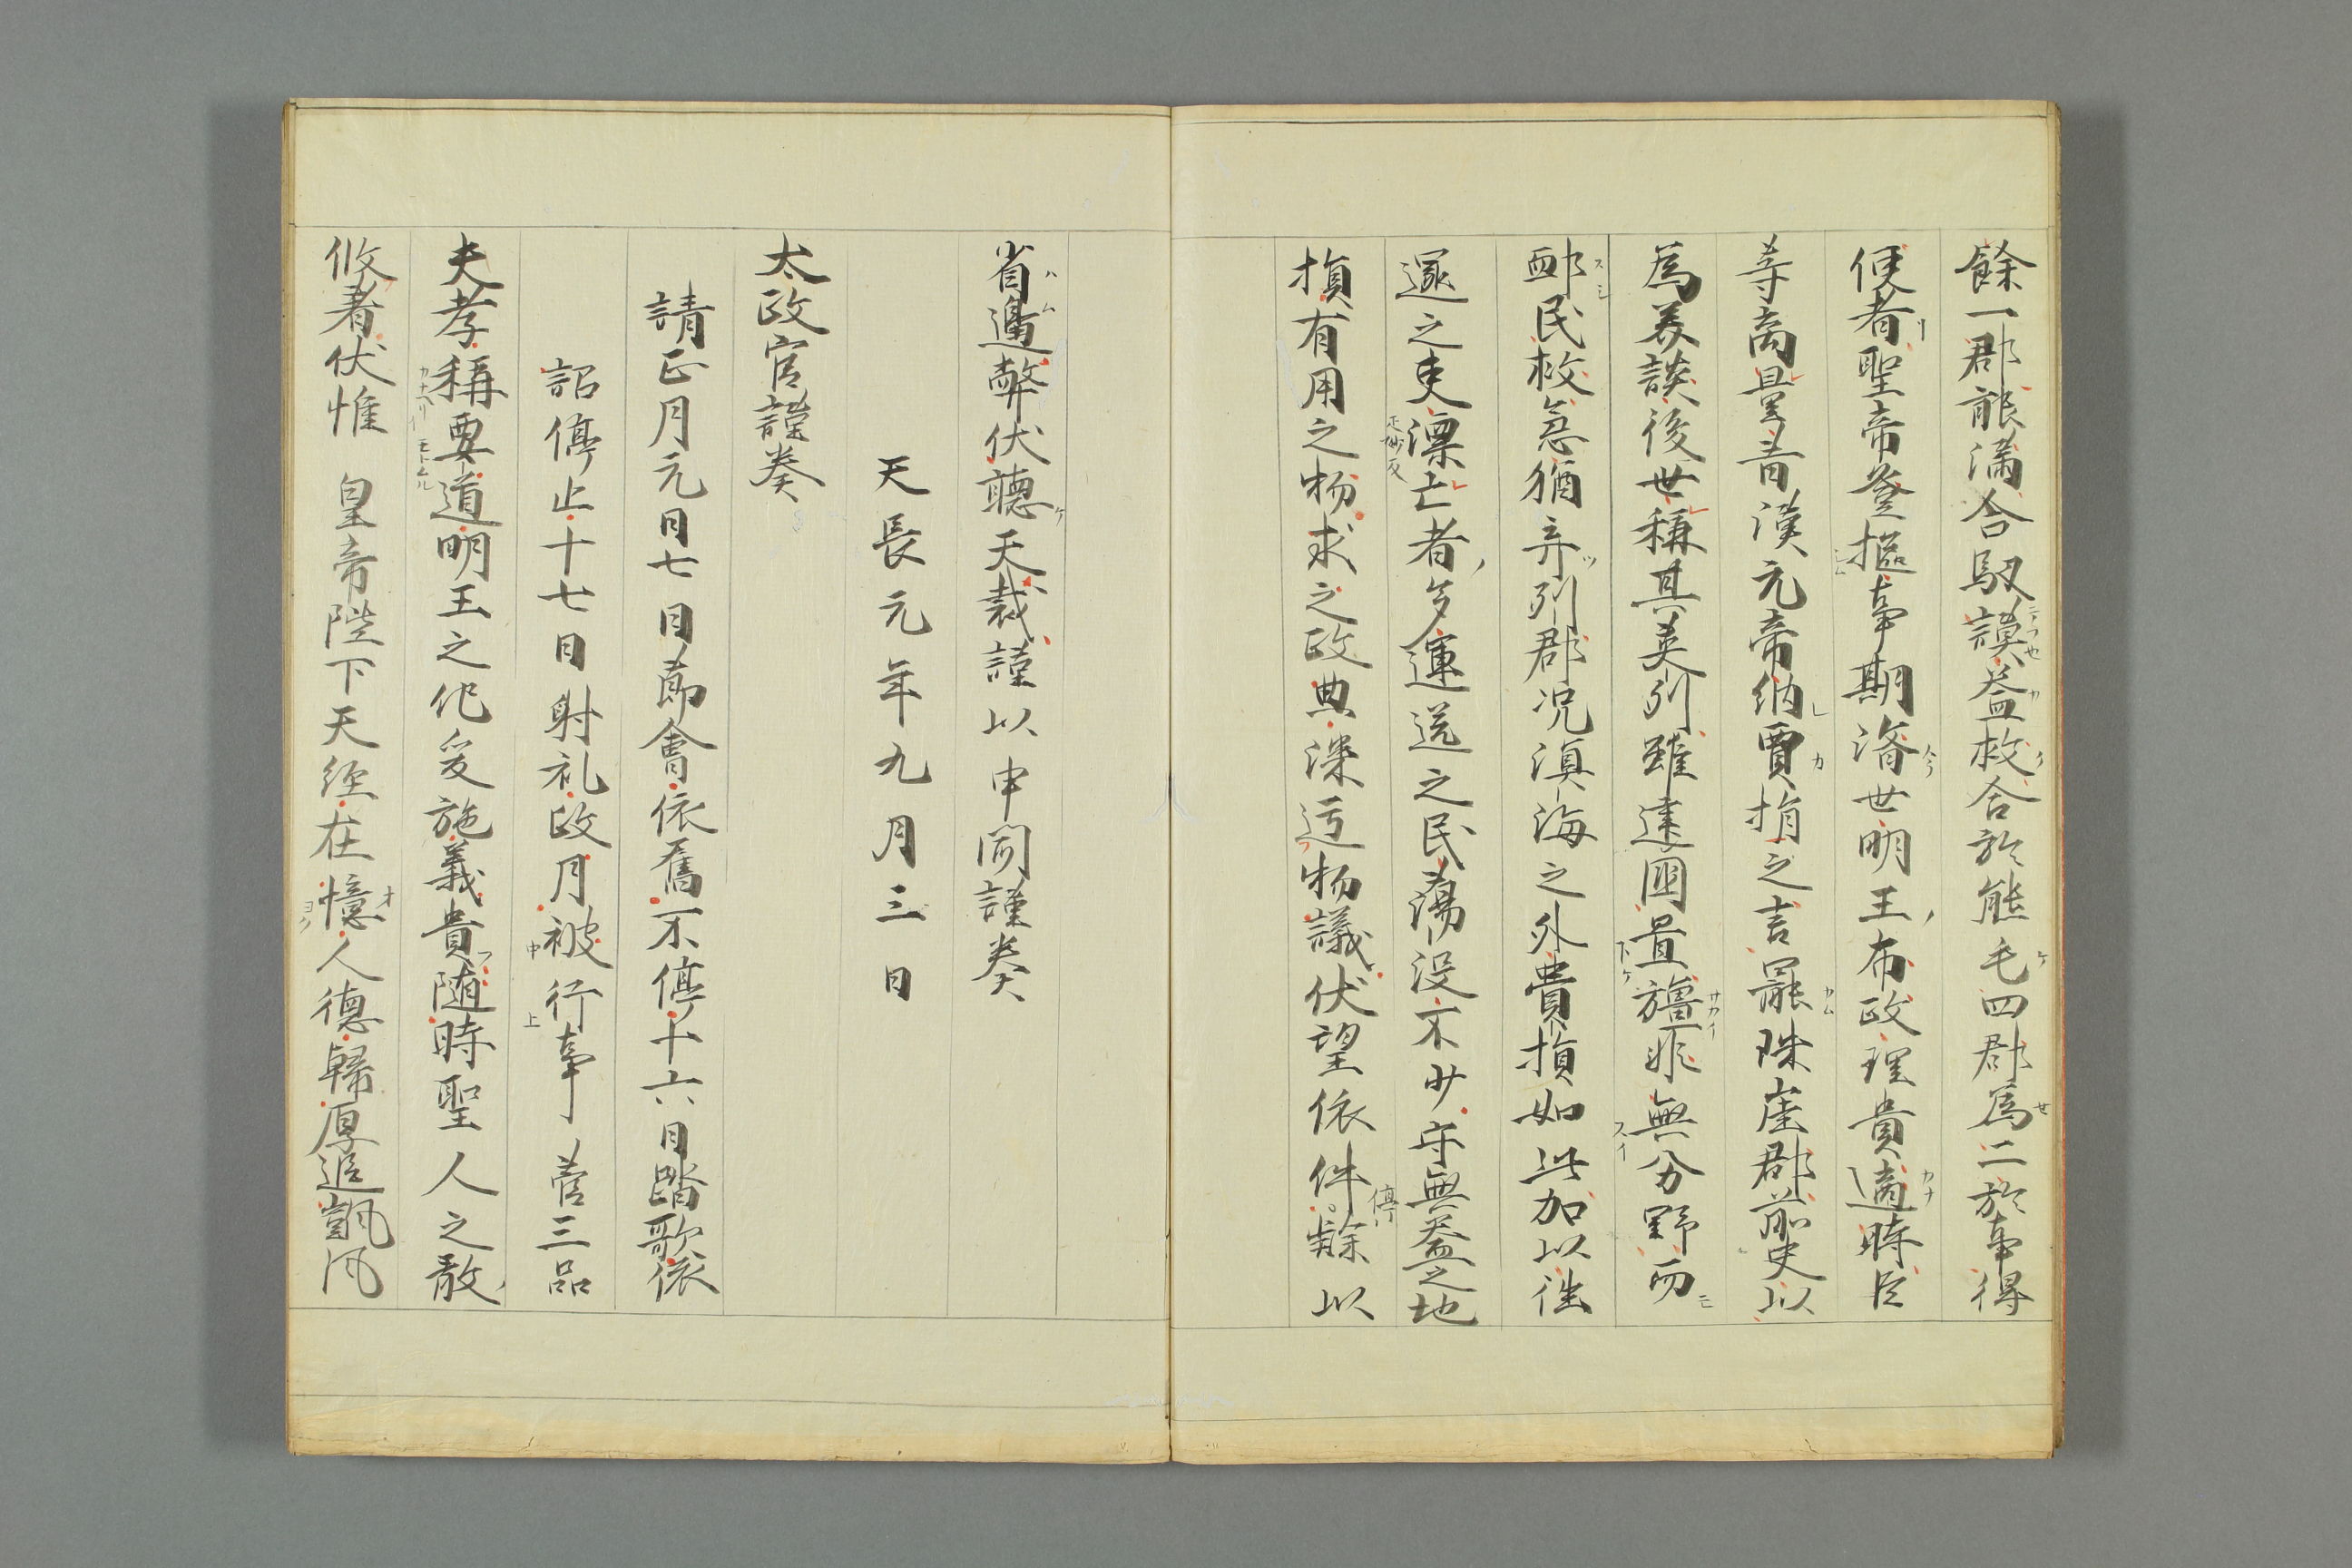 餘一郡能滿合馭謨益救合於熊毛四郡爲二於事得
便者聖帝登樞事期濟世明王布政理貴適時臣
等商量昔漢元帝納賈捐之言罷珠崖郡前史以
爲美談後世稱其英列雖建國畺旜罪無分野而
郵民救急猶弃列郡况溟海之外費損如此加以徃
還之吏漂亡者多運送之民蕩没不少守無益之地
損有用之物求之政典深迃物議伏望依件停隸以
省邉弊伏聽天裁謹以申聞謹奏
天長元年九月三日
太政官謹奏
請正月元日七日莭會依舊不停十六日踏歌依
詔停止十七日射礼改月被行事 菅三品
夫孝稱要道明王之化爰施義貴随時聖人之敎
攸著伏惟 皇帝陛下天經在憶人德歸厚追飄汎